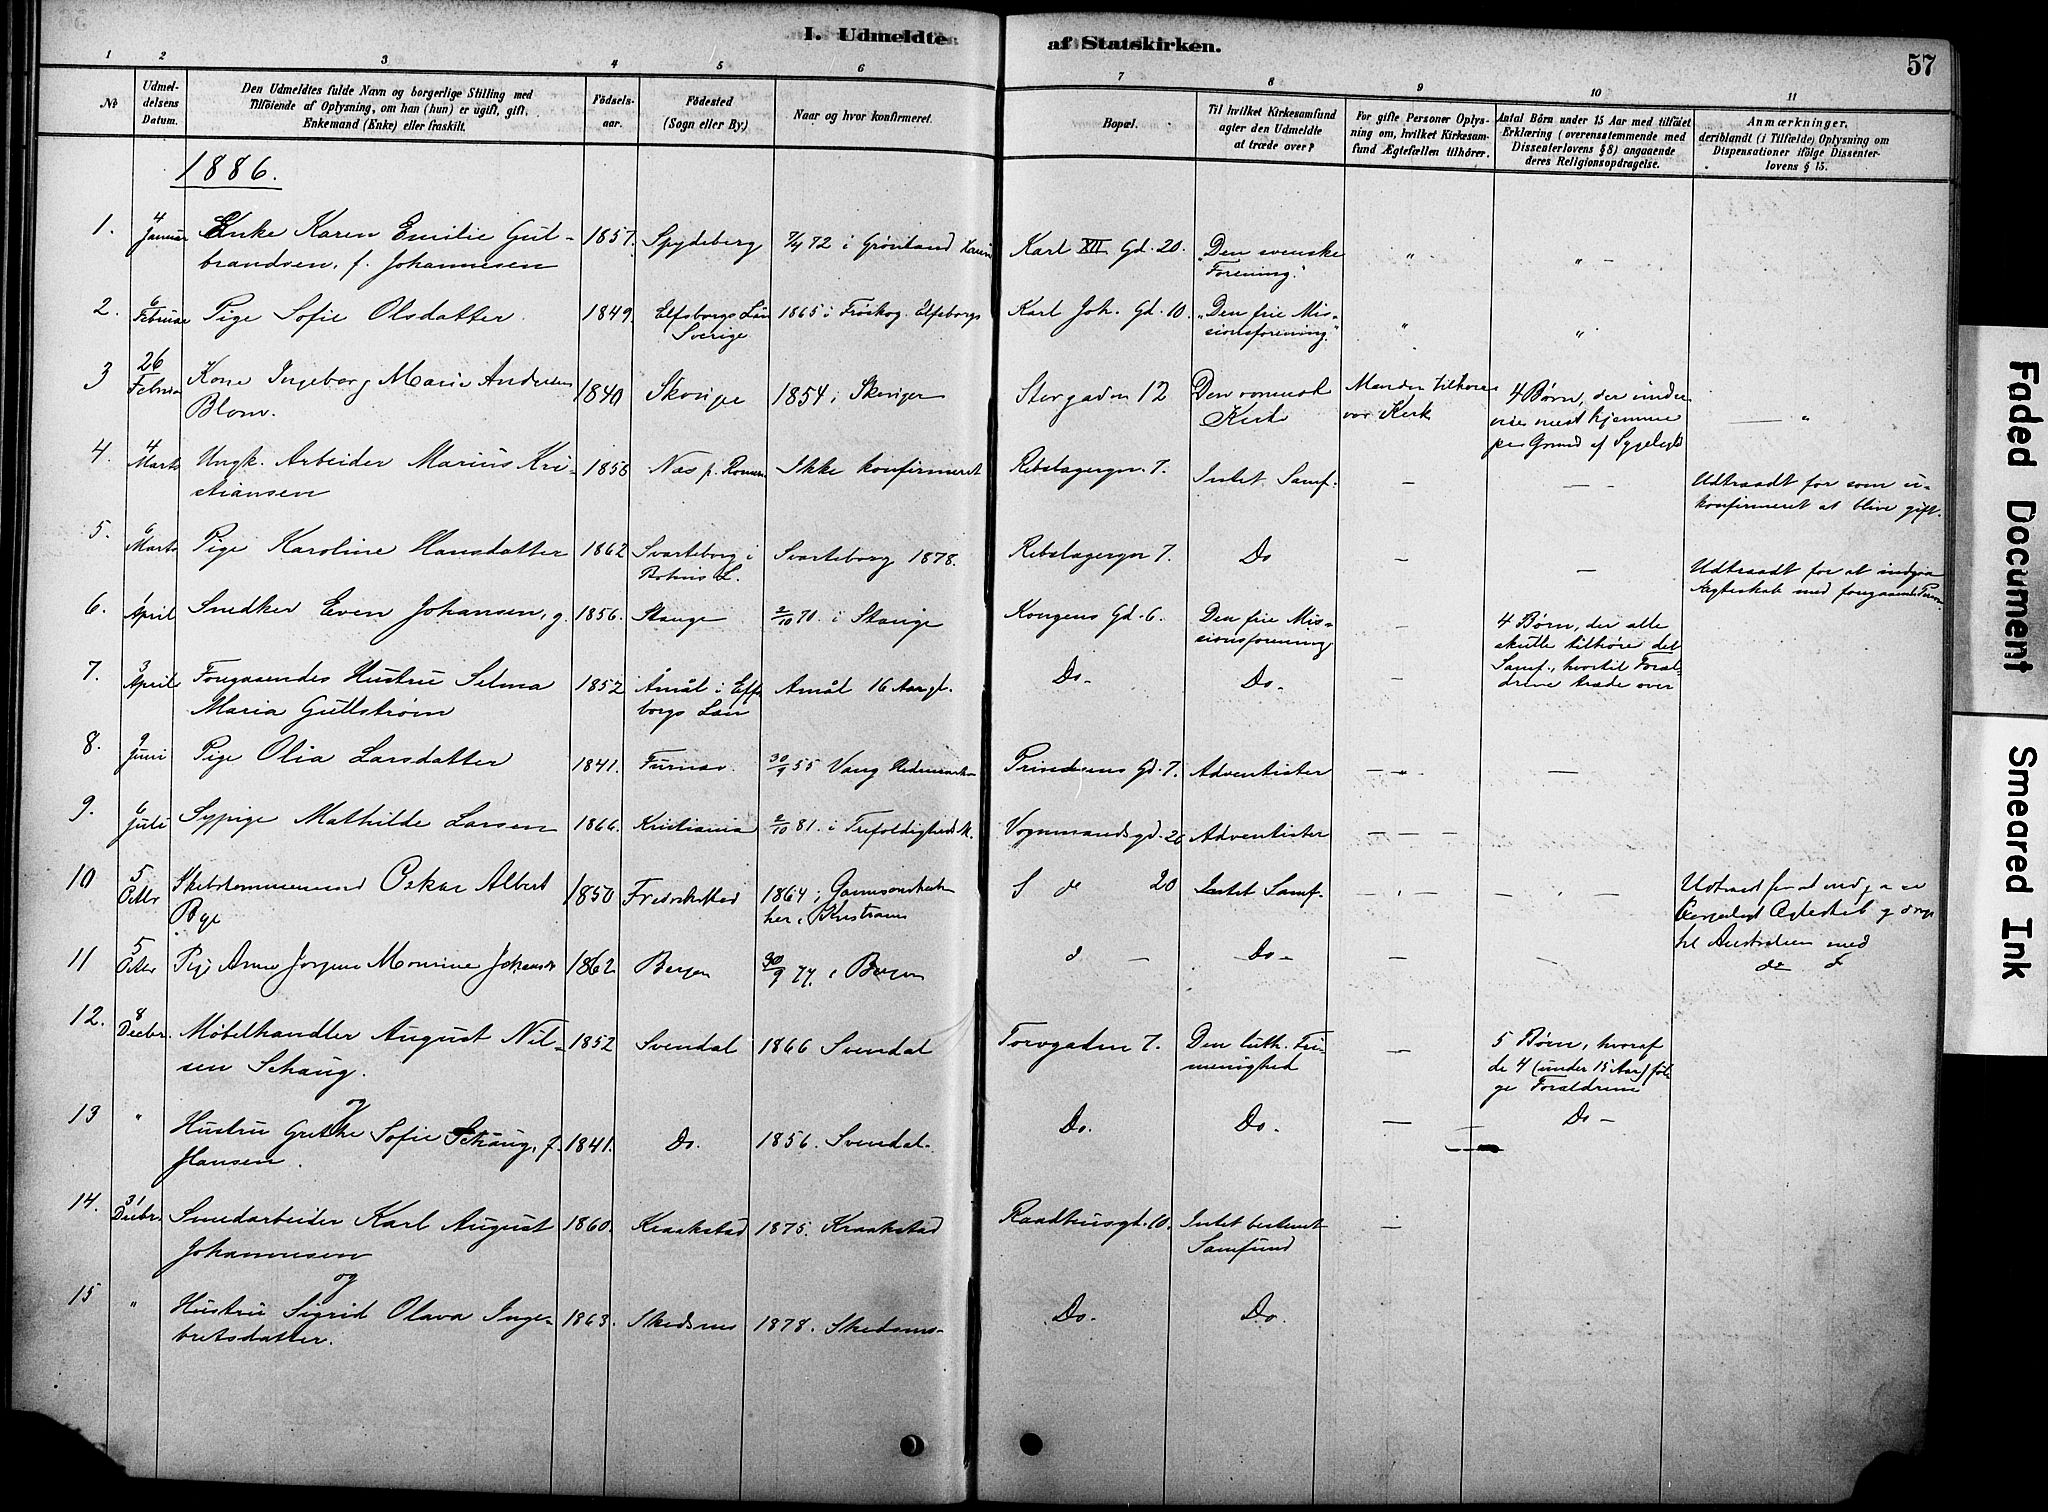 I. Udmeldte af Statskirken.
57
1 2 3 4 5 6 7 8 9 10 11
No
Udmeldelsens Datum.
Den Udmeldtes fulde Navn og borgerlige Stilling med
Tilføiende af Oplysning, om han (hun) er ugift, gift,
Enkemand (Enke) eller fraskilt.
Fødselsaar.
Fødested
(Sogn eller By)
Naar og hvor konfirmeret.
Bopæl.
Til hvilket Kirkesamfund
agter den Udmeldte
at træde over?
For gifte Personer Oplys-
ning om, hvilket Kirkesam-
fund Ægtefællen tilhører.
Antal Børn under 15 Aar med tilføiet
Erklæring (overensstemmende med
Dissenterlovens § 8) angaaende
deres Religionsopdragelse.
Anmærkninger,
deriblandt (i Tilfælde) Oplysning om
Dispensationer ifølge Dissenter-
lovens § 15.
1886.
1. 4 Januar Enke Karen Emilie Gul- 1857. Spydeberg 7/4 72 i Grønland Karl XII Gd. 20. "Den svenske " "
brandsen, f. Johannesen Forening."
2. 6 Februar Pige Sofie Olsdatter. 1849. Elfsborgs Län 1865 i Frøskog. Elfsborgs Karl Joh. Gd. 10. "Den frie Mis- " "
Sverige sionsforening."
3 26 Febru Kone Ingeborg Marie Andersen 1840 1854 i Storgaden 12 Den romersk Manden tilhører 4 Børn, der under-
Blom. Kirk vor Kirk vises mest hjemme
paa Grund af
4. 4 Marts Ungk. Arbeider Marius Kri- 1858 Næs p. Romer. Ikke konfirmeret Rebslagergn. 7. Intet Samf. — — Udtraadt for som u-
stiansen konfirmeret at blive gift.
5. 6 Marts Pige Karoline Hansdatter 1862 Svarteborg i Svarteborg 1878. Rebslagergn 7. Do — — Udtraadt for at indgaa
L. Ægteskab med foregaaende
6. 1 April Snedker Even Johansen, g. 1856. Stange 2/10 70. i Stange Kongens Gd. 6. Den frie Mis- — 4 Børn, der alle
sionsforening skulle tilhøre det
Samf., hvortil Foræl-
drene træde over
7. 3 April Foregaaendes Hustru Selma 1852 Åmål i Elfs Åmål 16 Aar gl. Do. Do. —
Maria Gullstrøm borgs Län
8. 9 Juni Pige Olia Larsdatter 1841. Furnæs. 30/9 55 Vang Hedemark Prindsens Gd. 7. Adventister — —
9. 6 Juli Sypige Mathilde Larsen 1866. Kristiania 2/10 81. i Trefoldigheds K. Vognmandsgd. 26 Adventister — — —
10 5 Octbr Oskar Albert 1850 Fredrikstad 1864 i 20 Intet Samf.
Bye her i
til Australien med
11 5 Octbr Pige Anne Jørgine 1862 Bergen 30/9 77. i Bergen Do — —
12. 8 Decbr. Møbelhandler August Nil- 1852 Svendal 1866 Svendal Torvgaden 7. Den luth. Fri- — 5 Børn, hvoraf
sen Schaug. menighed de 4 (under 15 Aar) føl-
ge Forældrene
13 " og
Hustru Grethe Sofie Schaug, f. 1841. Do. 1856. Svendal. Do. Do. — Do —
Hansen.
14. 31 Decbr. Smedarbeider Karl August 1860. Kraakstad 1875. Kraakstad Raadhusgd. 10. Intet bestemt —
Johannesen Samfund
15 " og
Hustru Sigrid Olava Inge- 1863. Skedsmo 1878. Skedsmo. Do. Do.
bretsdatter.
Faded Document
Smeared Ink